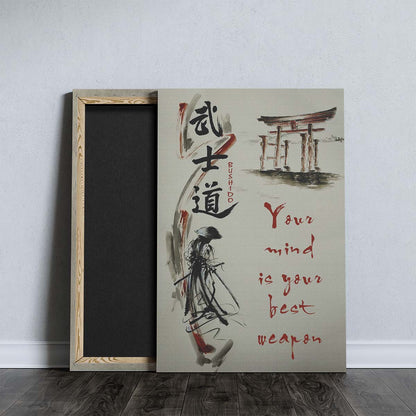 武士道
BUSHIDO
Your
mind
is your
best
weapon